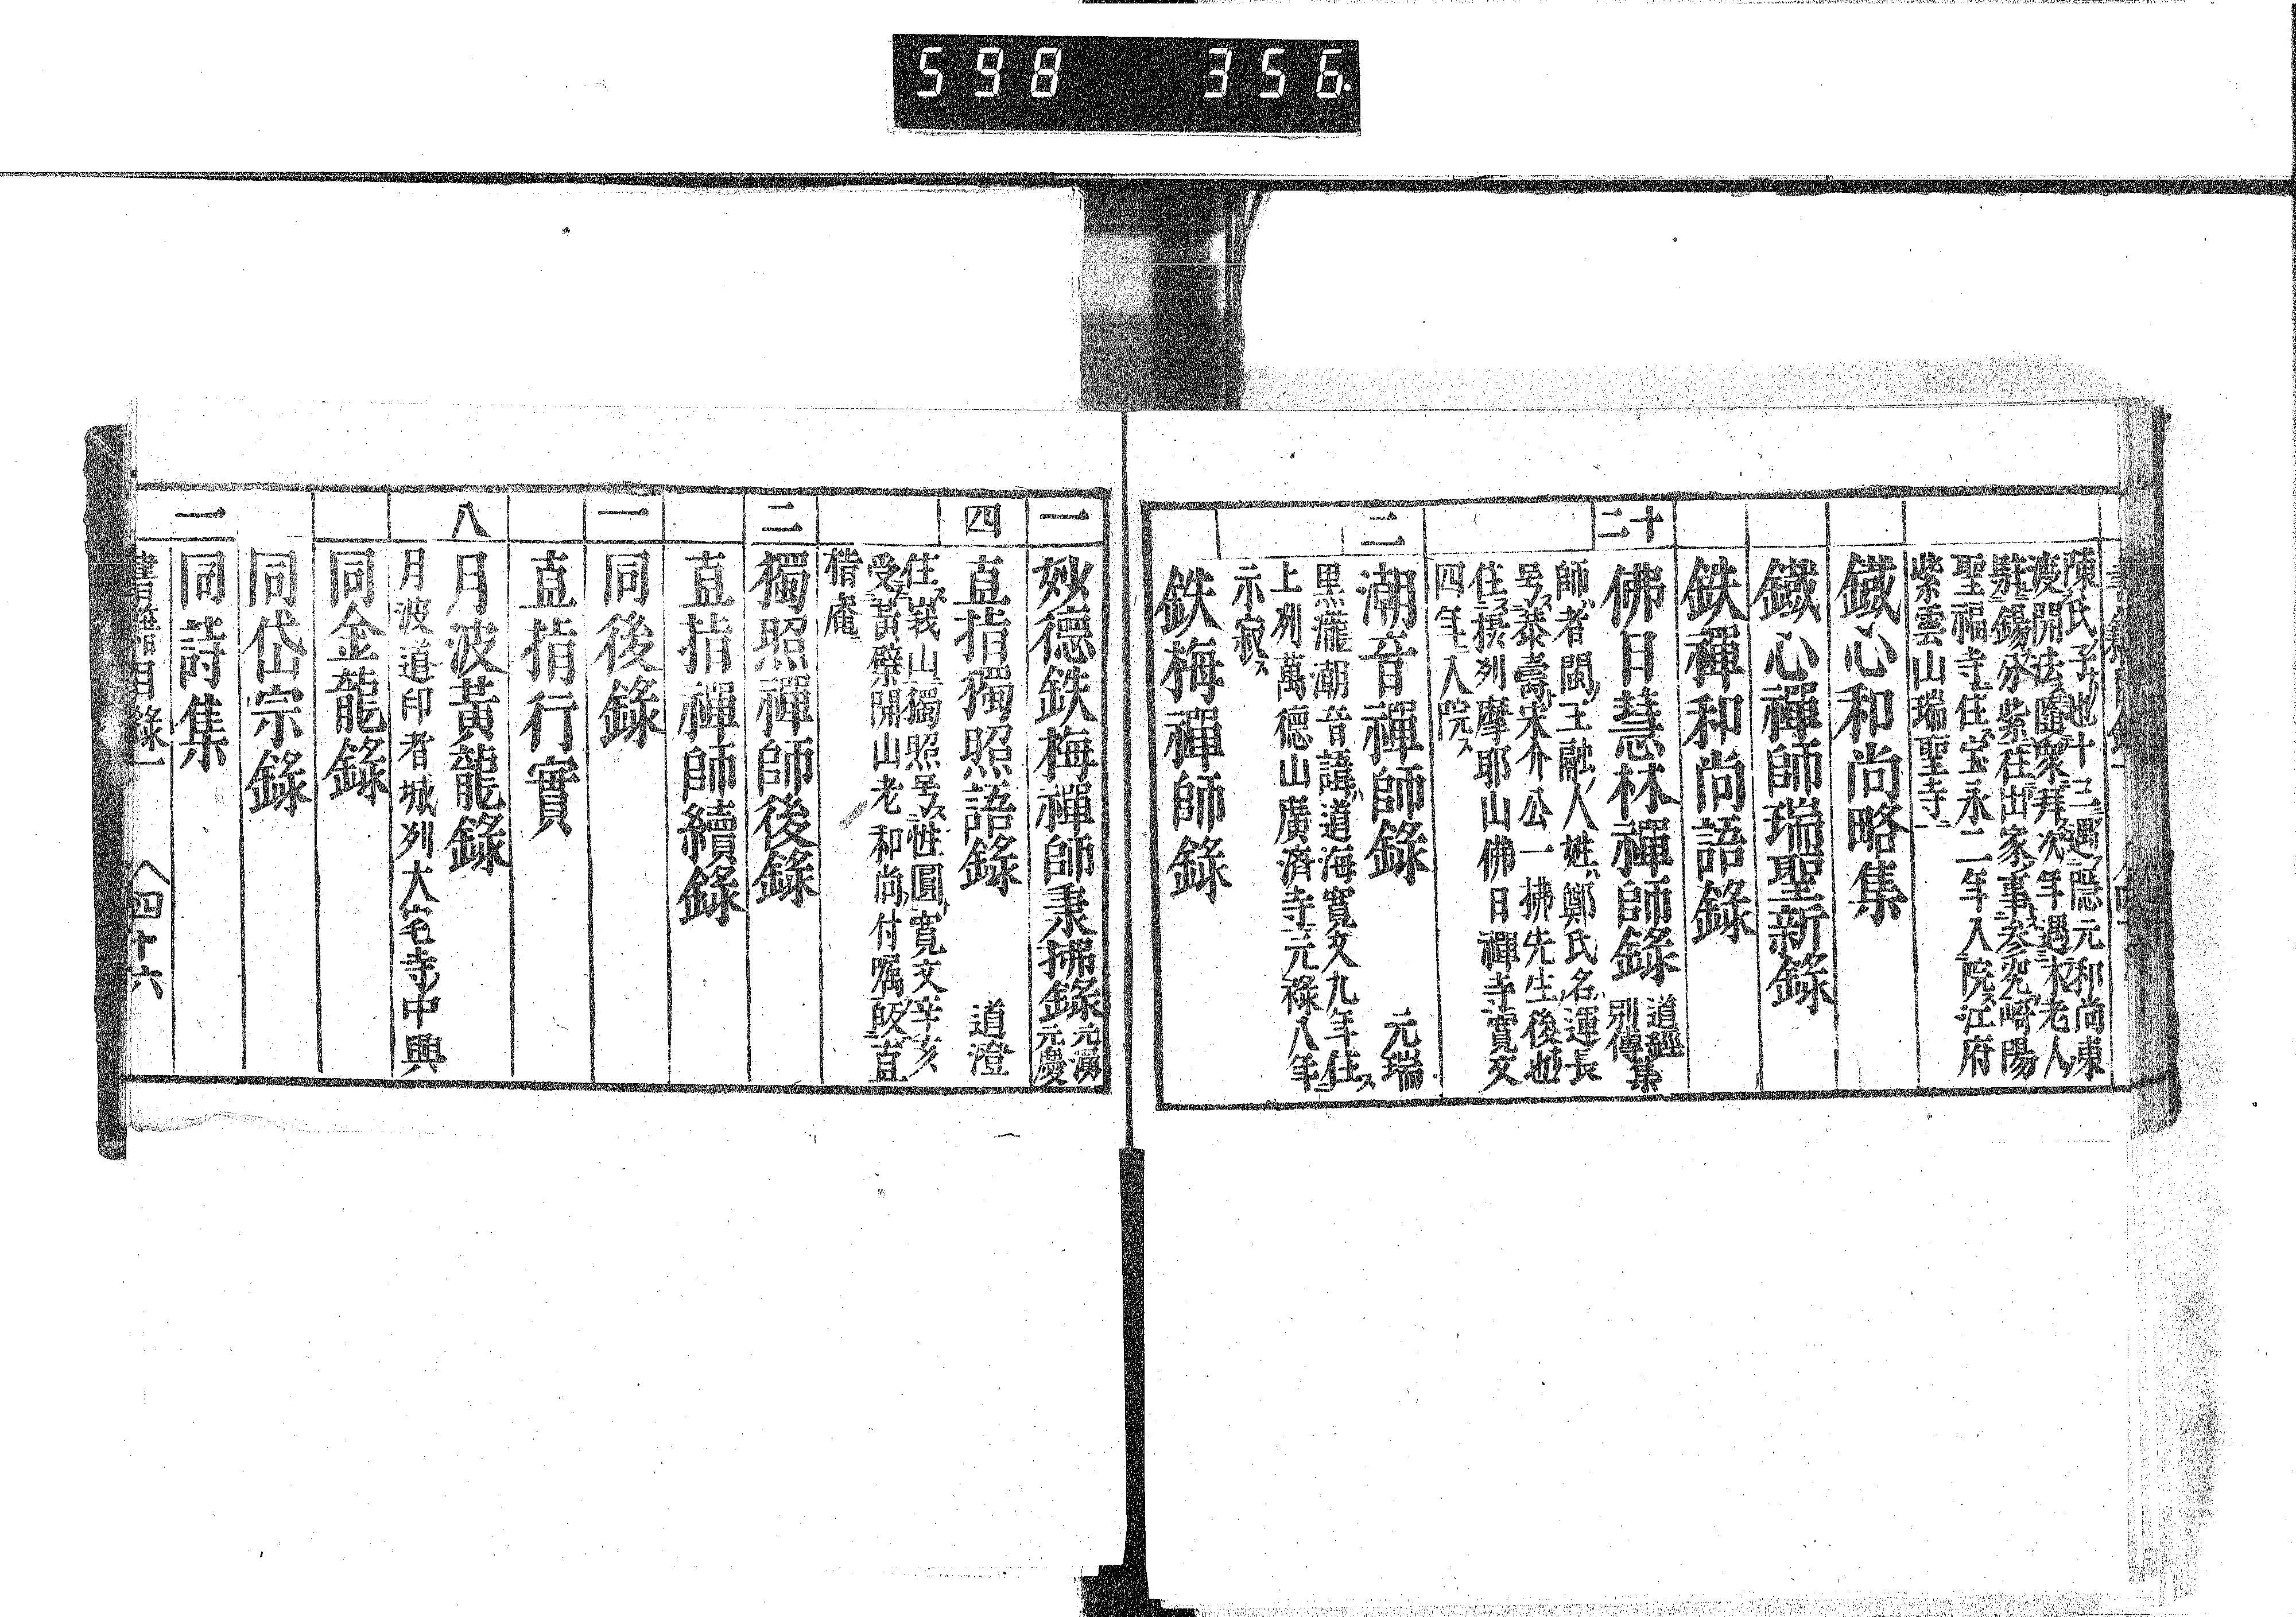 598 356.
陳氏子也十三遇隠元和尚東
渡開法隨衆拜次年遇木老人
駐錫永紫往出家事参究崎陽
聖福寺住宝永二年入院江府
紫雲山瑞聖寺
鐵心和尚略集
鐵心禪師瑞聖新錄
鉄禪和尚語錄
十二
佛日慧林禪師錄 道經 別傳 集
師者閩王融人姓鄭氏名運長
号泰壽宋介公一拂先生後也
住摂刕摩耶山佛日禪寺寛文
四年入院
二
潮音禪師錄 元瑞
黒瀧潮音諱道海寛文九年住ス
上刕萬德山廣済寺元祿八年
示寂ス
鉄梅禪師錄
一
妙德鉄梅禪師秉拂錄 元演 元慶
四
直指獨照語錄 道澄
住ス峩山獨照号ス性圓寛文辛亥
受黃檗開山老和尚付嘱皈直
楷庵
二
獨照禪師後錄
直指禪師續錄
一
同後錄
直指行實
八
月波黃龍錄
月波道印者城刕大宅寺中興
同金龍錄
同岱宗錄
二
同詩集
書籍目錄一 四十六